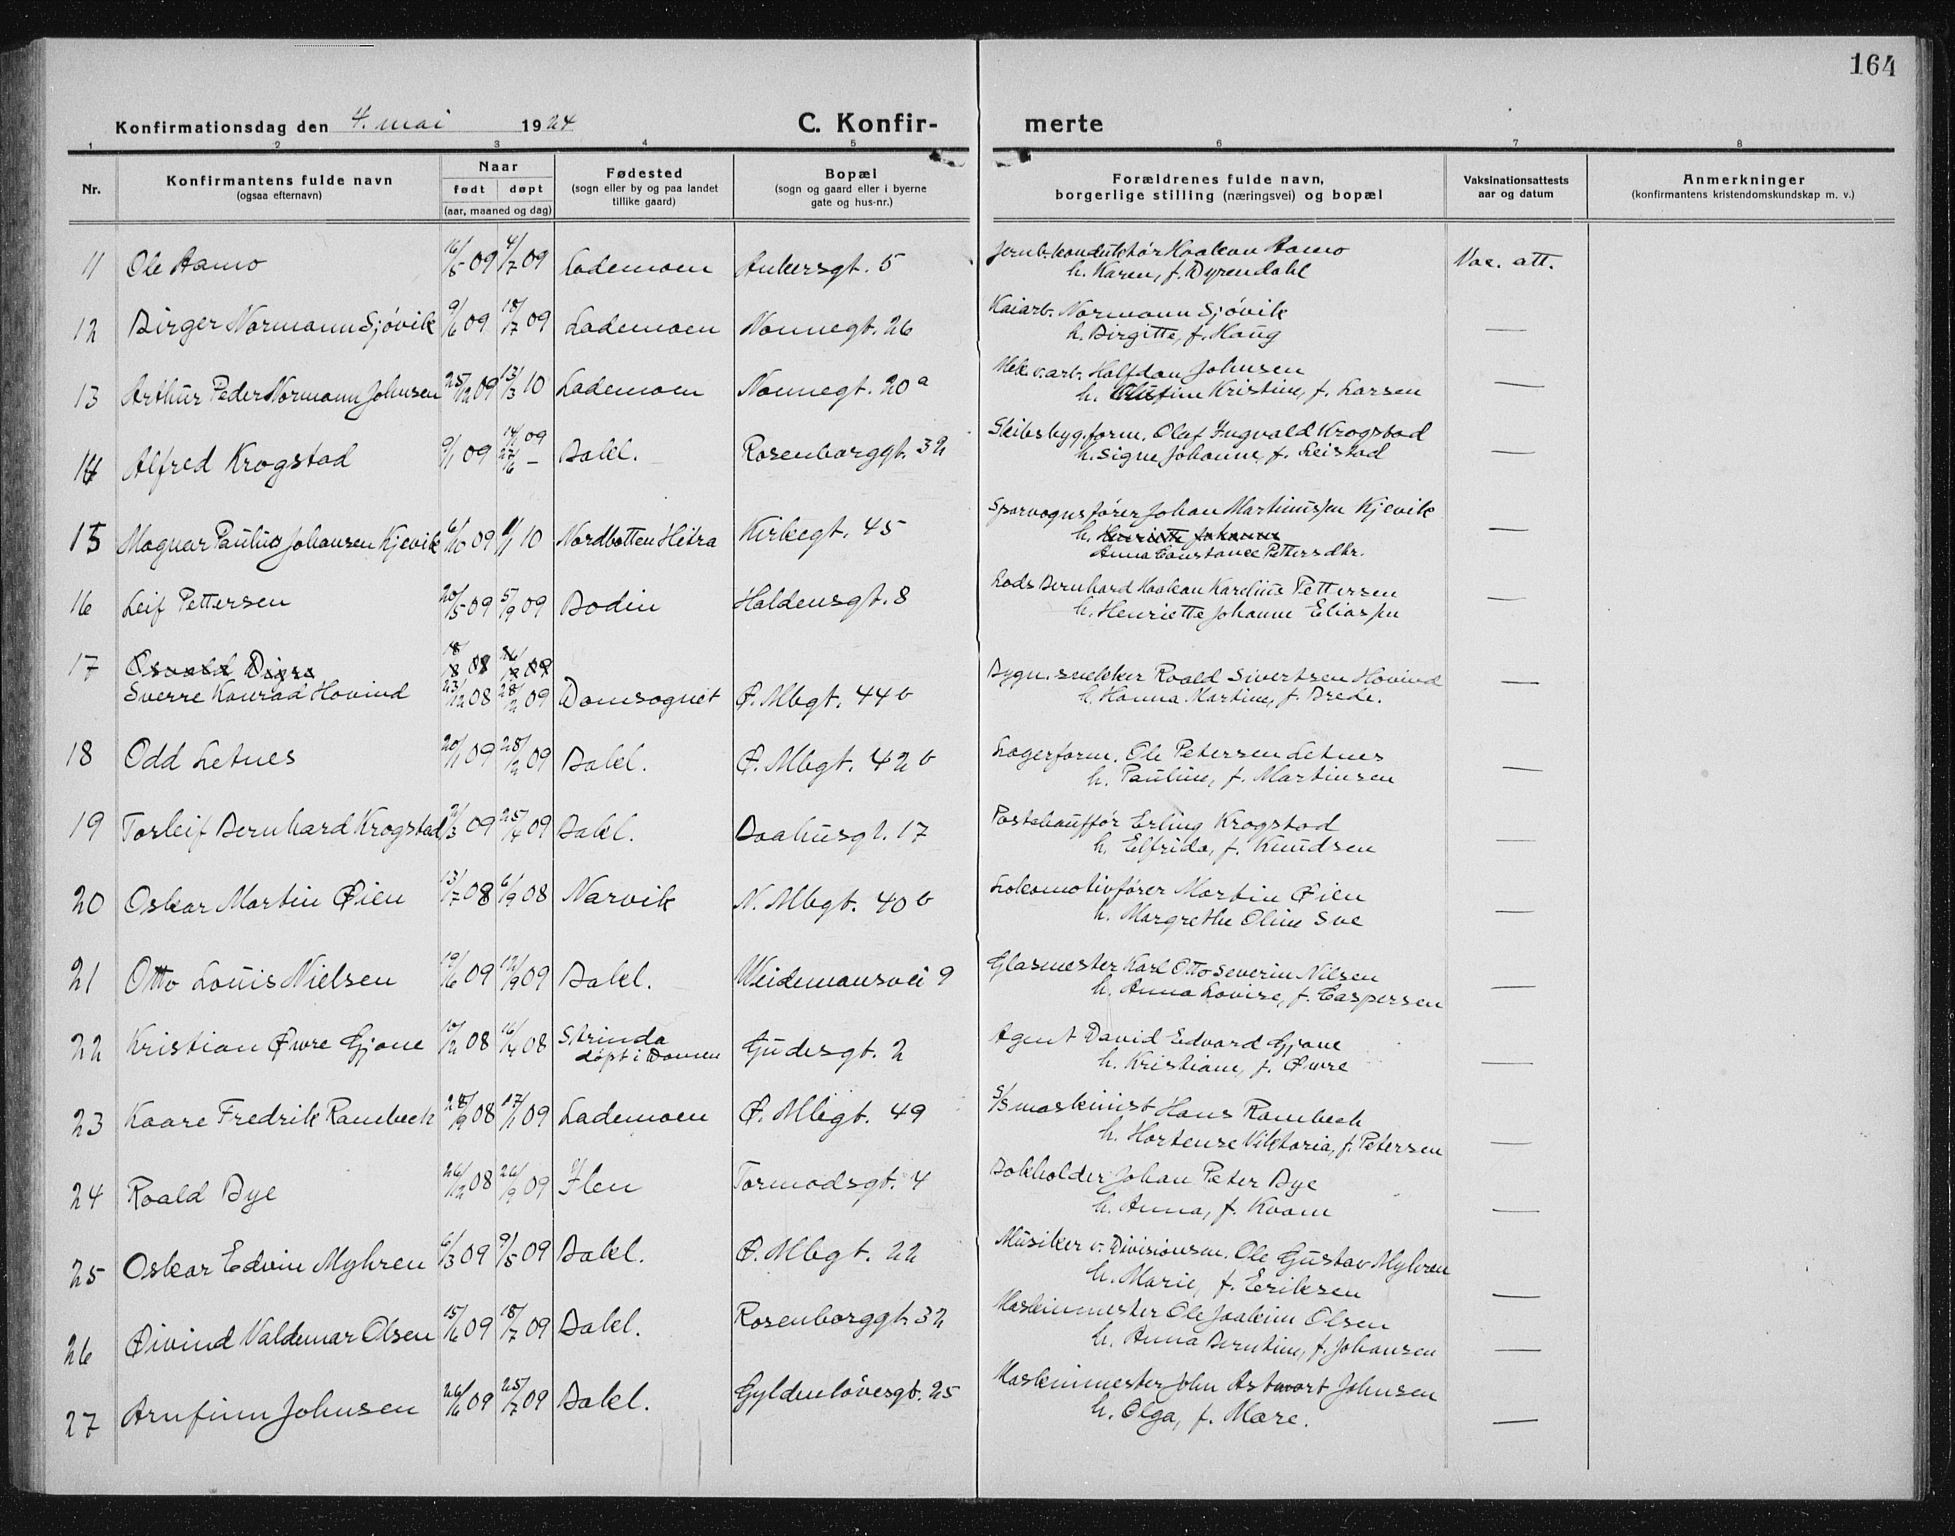 164
Konfirmationsdag den 4. mai 1924 C. Konfirmerte
1 2 3 4 5 6 7 8
Nr. Konfirmantens fulde navn (ogsaa efternavn) Naar født døpt (aar, maaned og dag) Fødested (sogn eller by og paa landet tillike gaard) Bopæl (sogn og gaard eller i byerne gate og hus-nr.) Forældrenes fulde navn, borgerlige stilling (næringsvei) og bopæl Vaksinationsattests aar og datum Anmerkninger (konfirmantens kristendomskundskap m. v.)
11 Ole Aamo 16/5 09 4/7 09 Lademoen Ankersgt. 5 Jernb.konduktør Haakon Aamo Vac. att.
h. Karen, f. Dyrendahl
12 Birger Normann Sjøvik 9/6 09 18/7 09 Lademoen Nonnegt. 26 Kaiarb. Normann Sjøvik —
h. Birgitte, f. Haug
13 Arthur Peder Normann Johnsen 25/12 09 13/3 10 Lademoen Nonnegt. 20a Mek.v.arb. Halfdan Johnsen —
h. Kristine, f. Larsen
14 Alfred Krogstad 9/1 09 14/1 09 27/6 — Bakl. Rosenborggt. 32 Skibsbyg.form. Olaf Ingvald Krogstad —
h. Signe Johanne, f. Leistad
15 Magnar Paulius Johansen Kjevik 6/10 09 1/1 10 Nordbotten Hitra Kirkegt. 45 Sporvognsfører Johan Martinussen Kjevik —
h. Henriette Johanne
Anna Constance Pettersdtr.
16 Leif Pettersen 20/5 09 5/9 09 Bodin Haldensgt. 8 Lods Bernhard Haakon Karelius Pettersen —
h. Henriette Johanne Eliassen
17 Osvald Digre
Sverre Konrad Hovind 23/12 08 28/2 09 Domsognet Ø. Mbgt. 44b Bygn.snekker Roald Sivertsen Hovind —
h. Hanna Martine, f. Brede.
18 Odd Letnes 20/1 09 28/2 09 Bakl. Ø. Mbgt. 42b Lagerform. Ole Petersen Letnes —
h. Pauline, f. Martinsen
19 Torleif Bernhard Krogstad 2/3 09 25/4 09 Bakl. Baahusgt. 17 Postchauffør Erling Krogstad —
h. Elfrida, f. Knudsen
20 Oskar Martin Øien 13/7 08 6/9 08 Narvik N. Mbgt. 40b Lokomotivfører Martin Øien —
h. Margrethe Oline Sve
21 Otto Louis Nielsen 19/6 09 12/9 09 Bakl. Weidemansvei 9 Glasmester Karl Otto Severin Nilsen —
h. Anna Lovise, f. Caspersen
22 Kristian Øwre Gjone 10/2 08 16/4 08 Strinda Gudesgt. 2 Agent David Edvard Gjone —
døpt i Domen h. Kristiane, f. Øwre
23 Kaare Fredrik Rambech 28/9 08 17/1 09 Lademoen Ø. Mbgt. 49 S/S maskinist Hans Rambech —
h. Hortense Viktoria, f. Petersen
24 Roald Bye 26/12 08 26/9 09 Ilen Tormodsgt. 4 Bokholder Johan Peter Bye —
h. Anna, f. Kvam
25 Oskar Edvin Myhren 6/3 09 9/5 09 Bakl. Ø. Mbgt. 22 Musiker v. Divisionsm. Ole Gustav Myhren —
h. Marie, f. Eriksen
26 Øivind Valdemar Olsen 15/6 09 18/7 09 Bakl. Rosenborggt. 32 Maskinmester Ole Joakim Olsen —
h. Anna Berntine, f. Johansen
27 Arnfinn Johnsen 26/6 09 25/7 09 Bakl. Gyldenløvesgt. 25 Maskinmester John Johnsen —
h. Olga, f. Mære.